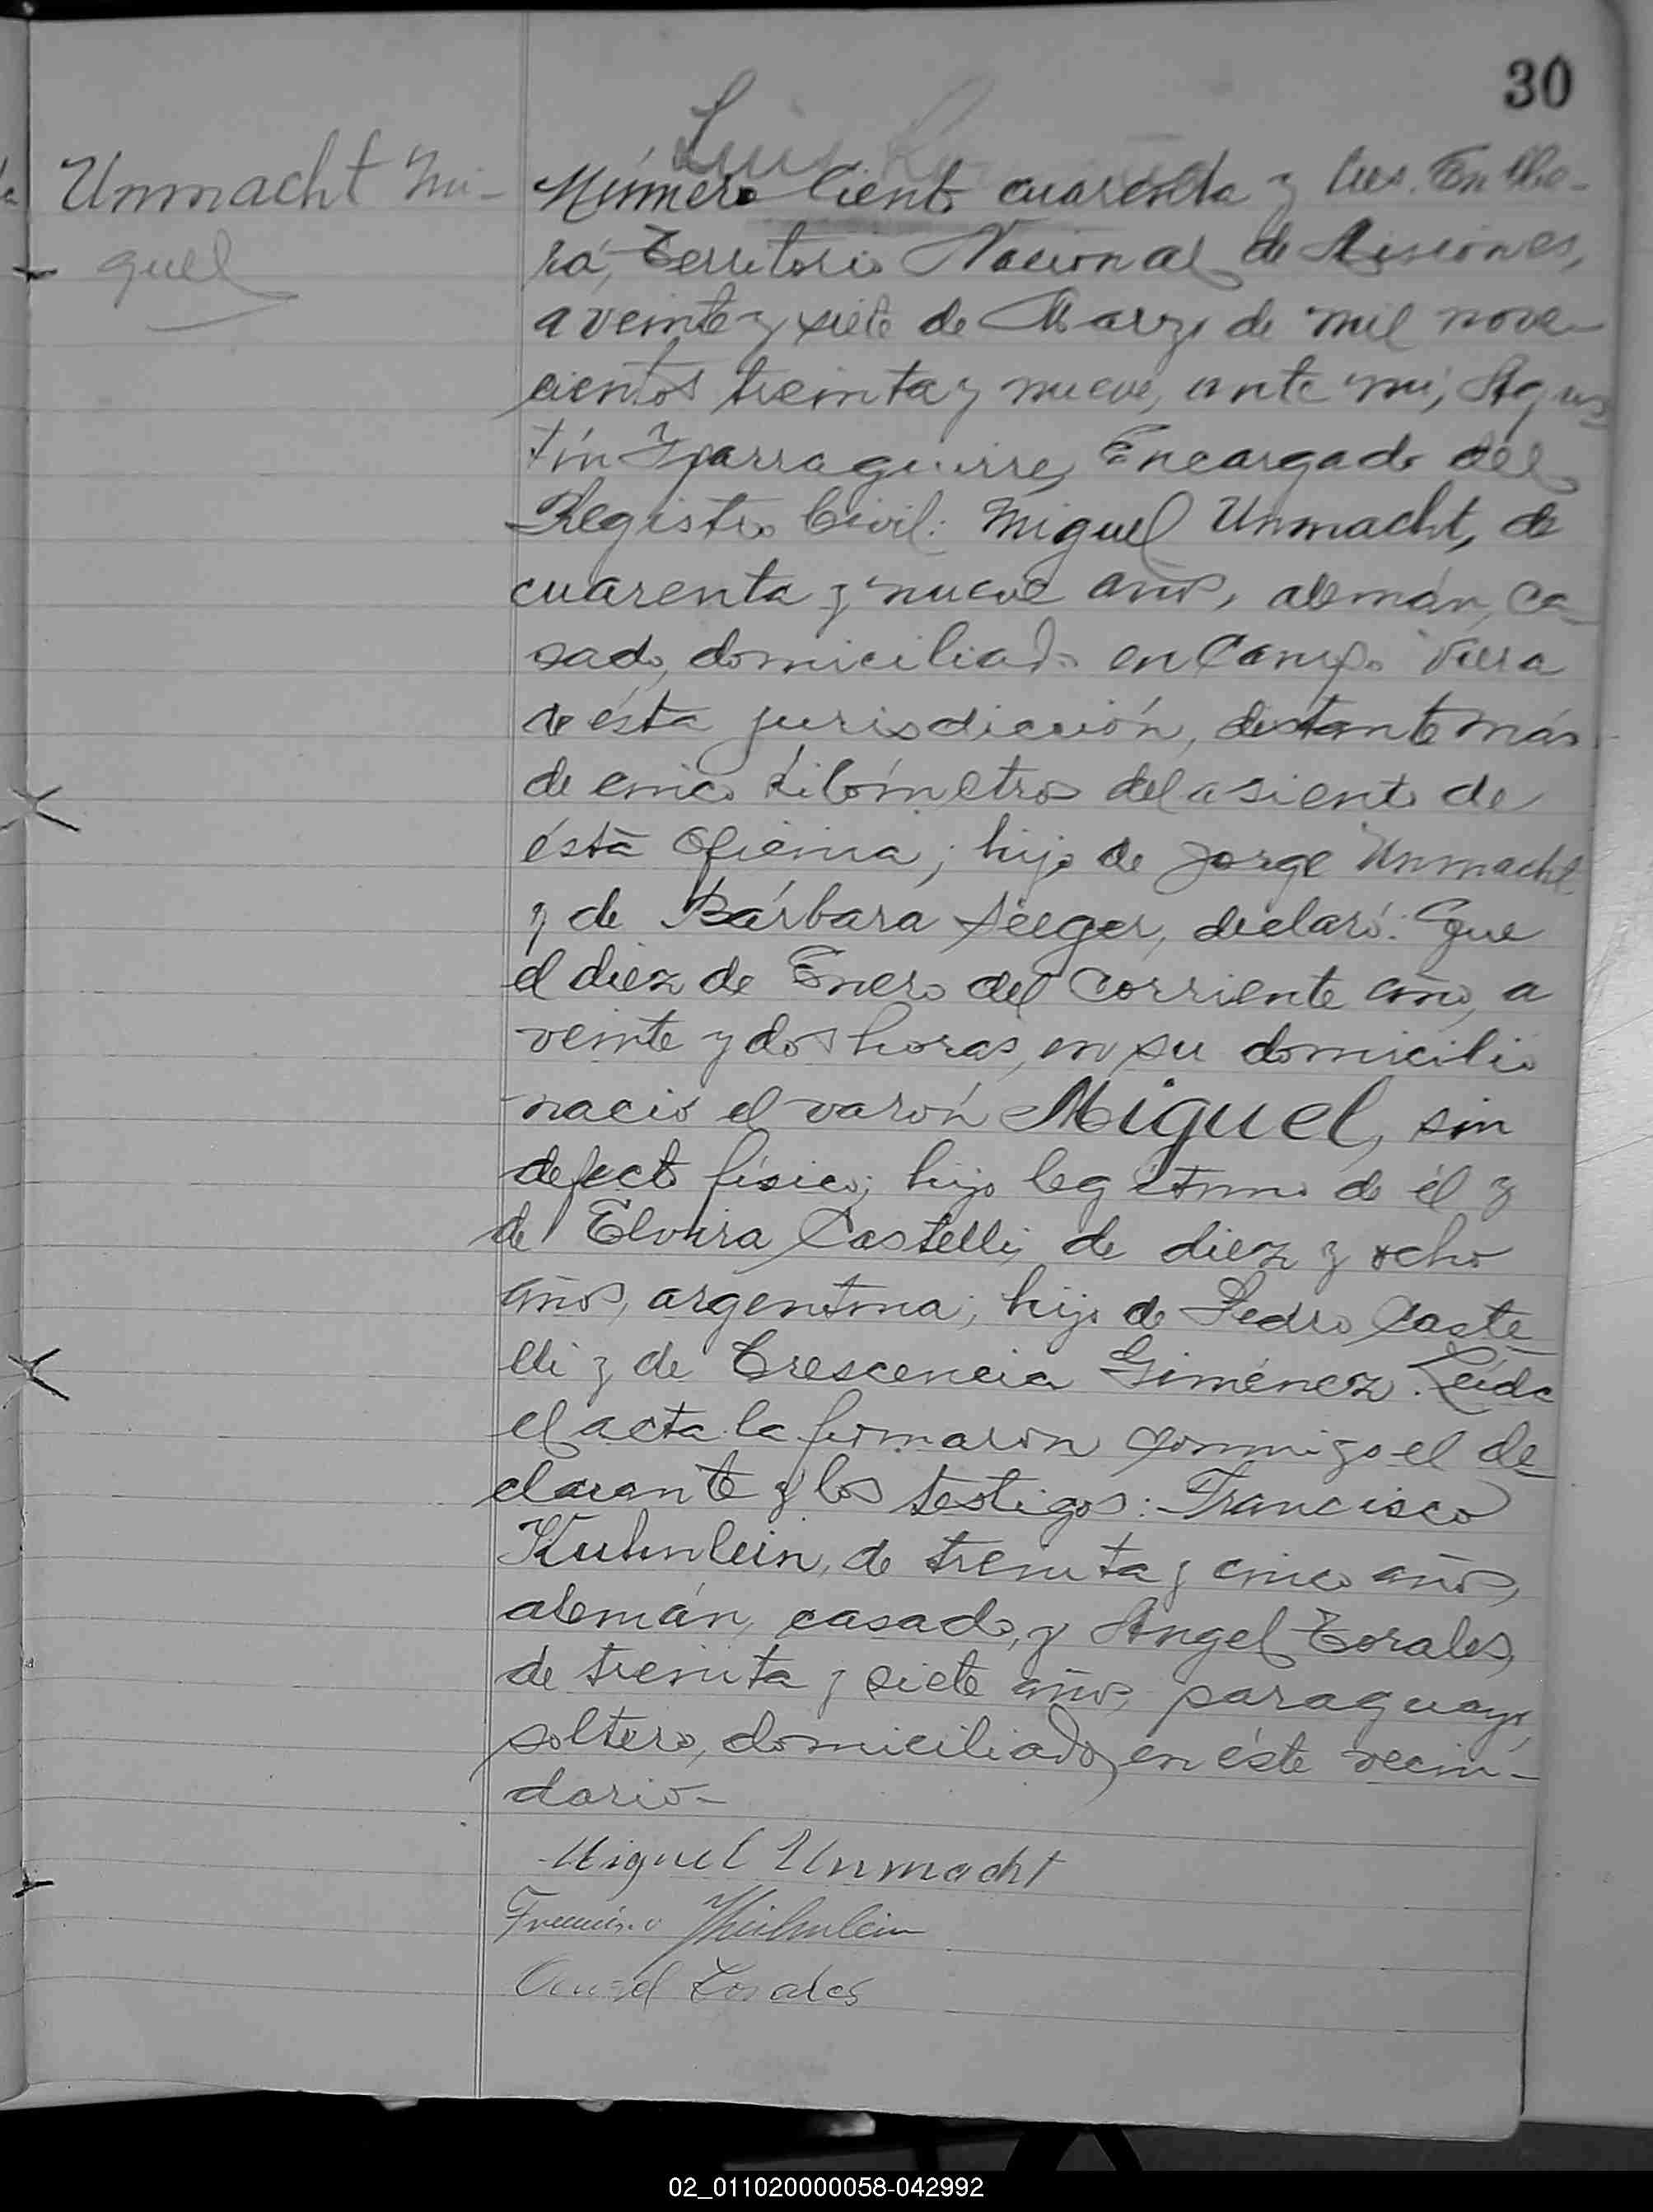 30
Luis
Unmacht Mi-
guel
Número ciento cuarenta y tres. En Obe-
rá, Territorio Nacional de Misiones,
a veinte y siete de Marzo de mil nove-
cientos treinta y nueve, ante mí, Agus-
tín Yparraguirre, Encargado del
Registro Civil: Miguel Unmacht, de
cuarenta y nueve años, alemán, ca-
sado, domiciliado en Campo Viera
de ésta jurisdicción, distante más
de cinco kilómetros del asiento de
ésta Oficina; hijo de Jorge Unmacht
y de Bárbara Seeger, declaró: Que
el diez de Enero del corriente año, a
veinte y dos horas, en su domicilio
nació el varón Miguel, sin
defecto físico; hijo legítimo de él y
de Elvira Castelli, de diez y ocho
años, argentina; hija de Pedro Caste-
lli y de Crescencia Giménez. Leída
el acta la firmaron conmigo el de-
clarante y los testigos: Francisco
Kuhnlein, de treinta y cinco años,
alemán, casado, y Angel Torales,
de treinta y siete años, paraguayo,
soltero, domiciliados en éste vecin-
dario-
Miguel Unmacht
Francisco Kuhnlein
Angel Torales
02_011020000058-042992